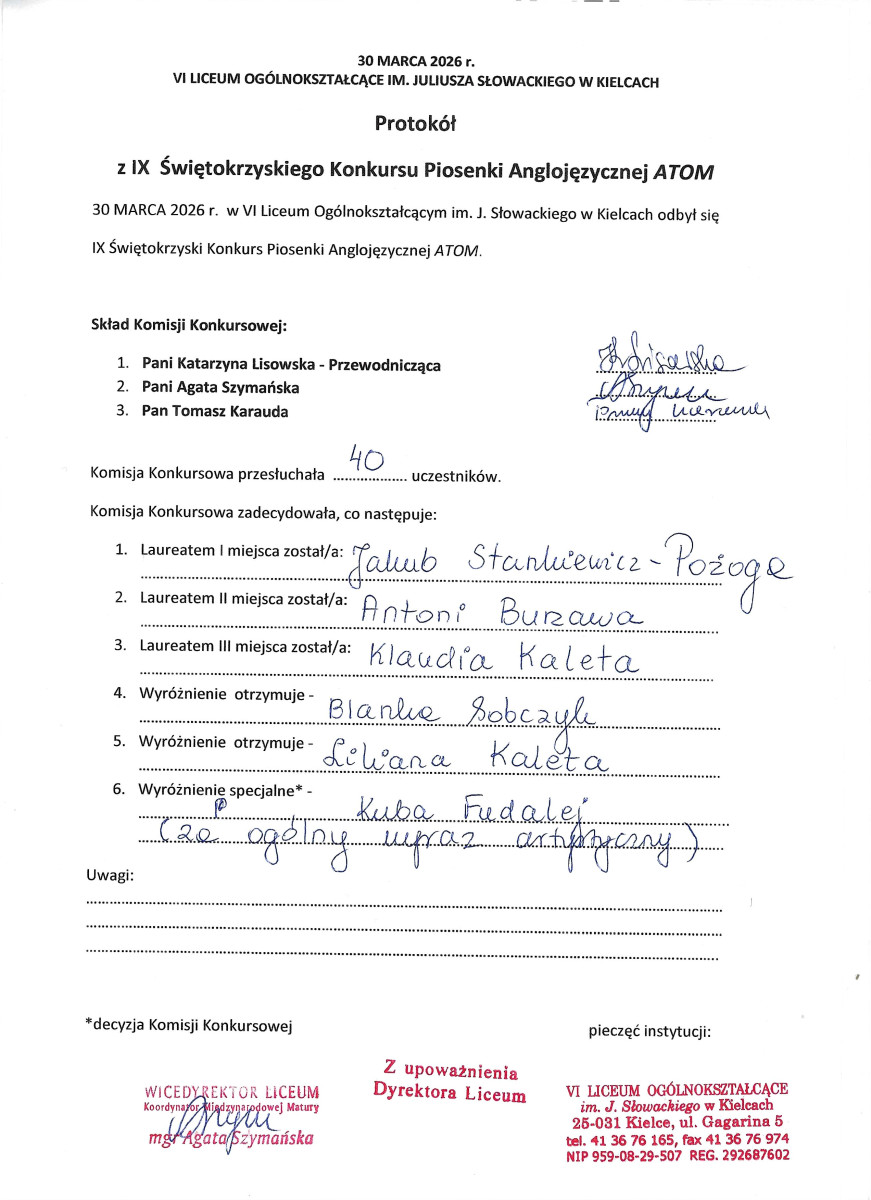 30 MARCA 2026 r.
VI LICEUM OGÓLNOKSZTAŁCĄCE IM. JULIUSZA SŁOWACKIEGO W KIELCACH
Protokół
z IX Świętokrzyskiego Konkursu Piosenki Anglojęzycznej ATOM
30 MARCA 2026 r. w VI Liceum Ogólnokształcącym im. J. Słowackiego w Kielcach odbył się
IX Świętokrzyski Konkurs Piosenki Anglojęzycznej ATOM.
Skład Komisji Konkursowej:
1. Pani Katarzyna Lisowska - Przewodnicząca
2. Pani Agata Szymańska
3. Pan Tomasz Karauda
Komisja Konkursowa przesłuchała 40 uczestników.
Komisja Konkursowa zadecydowała, co następuje:
1. Laureatem I miejsca został/a: Jakub Stankiewicz-Pożoga
2. Laureatem II miejsca został/a: Antoni Burzawa
3. Laureatem III miejsca został/a: Klaudia Kaleta
4. Wyróżnienie otrzymuje - Blanka Sobczyk
5. Wyróżnienie otrzymuje - Liliana Kaleta
6. Wyróżnienie specjalne* -
Kuba Fudalej
(za ogólny wyraz artystyczny)
Uwagi:
*decyzja Komisji Konkursowej
pieczęć instytucji:
WICEDYREKTOR LICEUM
Koordynator Międzynarodowej Matury
mgr Agata Szymańska
Z upoważnienia
Dyrektora Liceum
VI LICEUM OGÓLNOKSZTAŁCĄCE
im. J. Słowackiego w Kielcach
25-031 Kielce, ul. Gagarina 5
tel. 41 36 76 165, fax 41 36 76 974
NIP 959-08-29-507 REG. 292687602